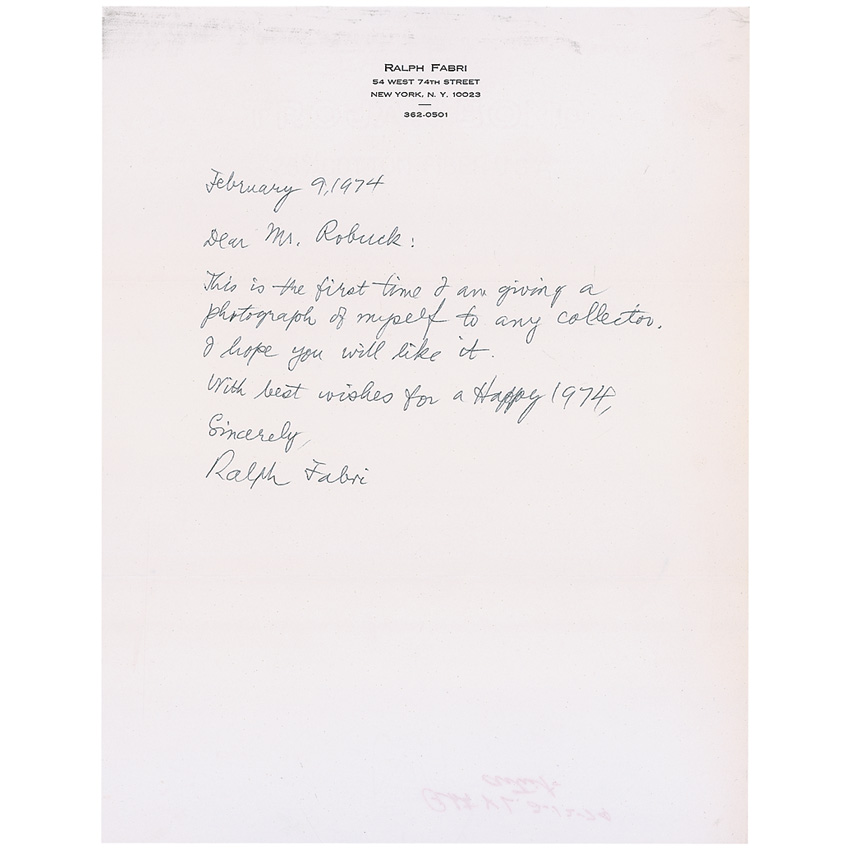 RALPH FABRI
54 WEST 74TH STREET
NEW YORK, N. Y. 10023
362-0501
February 9, 1974
Dear Mr. Robuck:
This is the first time I am giving a
photograph of myself to any collector.
I hope you will like it.
With best wishes for a Happy 1974,
Sincerely,
Ralph Fabri